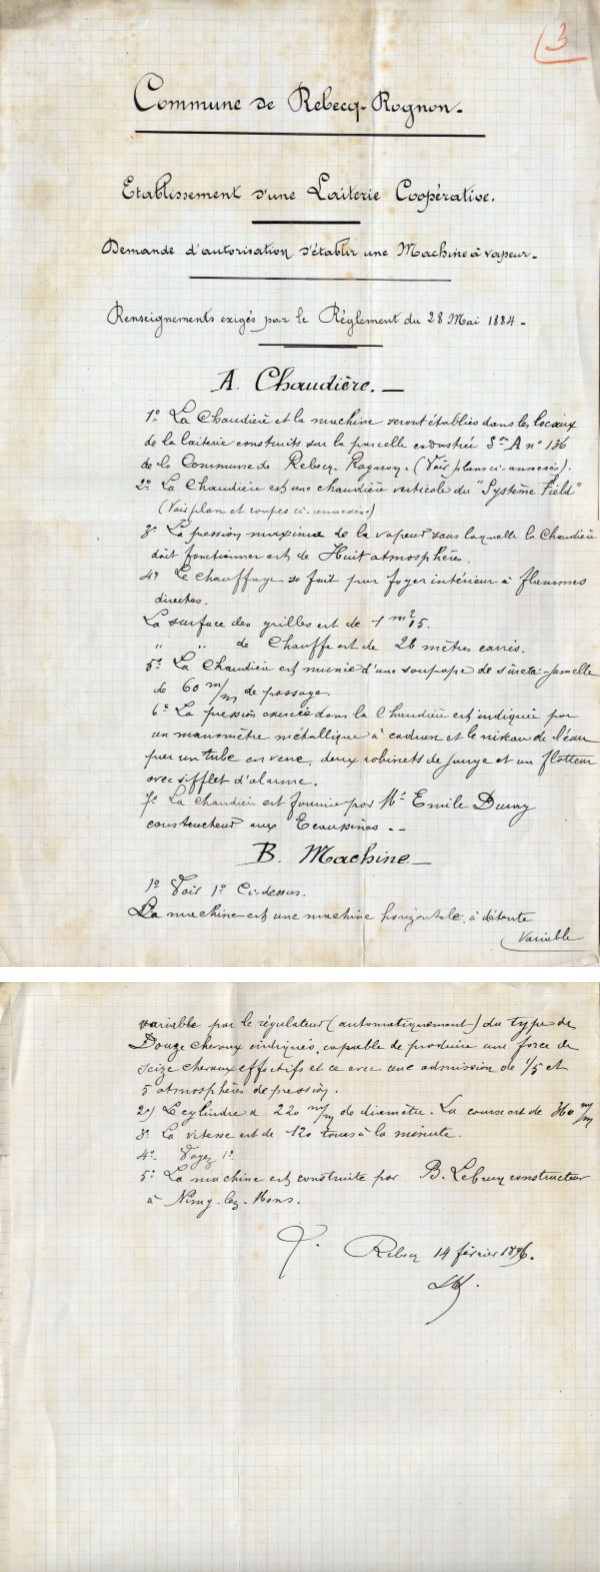 3
Commune de Rebecq-Rognon.
Etablissement d'une Laiterie Coopérative.
Demande d'autorisation d'établir une Machine à vapeur.
Renseignements exigés par le Règlement du 28 Mai 1884.
A. Chaudière.
1º La Chaudière et la machine seront établies dans les locaux
de la laiterie construits sur la parcelle cadastrée Son A nº 136
de la Commune de Rebecq-Rognon. (Voir plans ci-annexés).
2º La Chaudière est une chaudière verticale du "Système Field"
(Voir plan et coupes ci-annexés)
3º La pression maxima de la vapeur sous laquelle la Chaudière
doit fonctionner est de Huit atmosphères.
4º Le chauffage se fait par foyer intérieur à flammes
directes.
La surface des grilles est de 1 m² 15.
" " de Chauffe est de 26 mètres carrés.
5º La Chaudière est munie d'une soupape de sûreté jumelle
de 60 m/m de passage.
6º La pression exercée dans la Chaudière est indiquée par
un manomètre métallique à cadran et le niveau de l'eau
par un tube en verre, deux robinets de jauge et un flotteur
avec sifflet d'alarme.
7º La chaudière est fournie par Mr Emile Duray
constructeur aux Ecaussines.
B. Machine
1º Voir 1º Ci-dessus.
La machine est une machine horizontale, à détente
variable
variable par le régulateur (automatiquement) du type de
Douze chevaux indiqués, capable de produire une force de
seize chevaux effectifs et ce avec une admission de 1/5 et
5 atmosphères de pression.
2º) Le cylindre a 220 m/m de diamètre. La course est de 360 m/m
3º La vitesse est de 120 tours à la minute.
4º Voyez 1º
5º La machine est construite par B. Lebrun constructeur
à Nimy-lez-Mons.
Rebecq 14 février 1896.